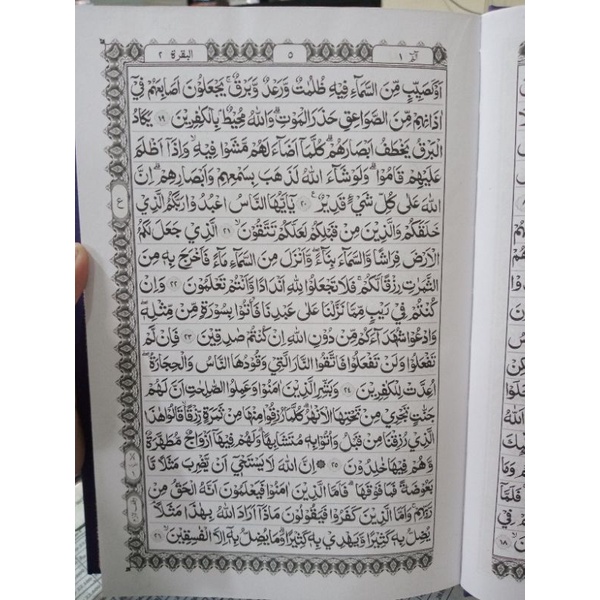 الٓمّٓ ١ ٥ البقرة ٢
اَوْ كَصَيِّبٍ مِّنَ السَّمَآءِ فِيْهِ ظُلُمٰتٌ وَّرَعْدٌ وَّبَرْقٌ ۚ يَجْعَلُوْنَ اَصَابِعَهُمْ فِيْٓ
اٰذَانِهِمْ مِّنَ الصَّوَاعِقِ حَذَرَ الْمَوْتِ ۗ وَاللّٰهُ مُحِيْطٌۢ بِالْكٰفِرِيْنَ ١٩ يَكَادُ
الْبَرْقُ يَخْطَفُ اَبْصَارَهُمْ ۗ كُلَّمَآ اَضَآءَ لَهُمْ مَّشَوْا فِيْهِ ۙ وَاِذَآ اَظْلَمَ
عَلَيْهِمْ قَامُوْا ۗ وَلَوْ شَآءَ اللّٰهُ لَذَهَبَ بِسَمْعِهِمْ وَاَبْصَارِهِمْ ۗ اِنَّ
اللّٰهَ عَلٰى كُلِّ شَيْءٍ قَدِيْرٌ ٢٠ يٰٓاَيُّهَا النَّاسُ اعْبُدُوْا رَبَّكُمُ الَّذِيْ
خَلَقَكُمْ وَالَّذِيْنَ مِنْ قَبْلِكُمْ لَعَلَّكُمْ تَتَّقُوْنَ ۙ ٢١ الَّذِيْ جَعَلَ لَكُمُ
الْاَرْضَ فِرَاشًا وَّالسَّمَآءَ بِنَآءً ۖ وَّاَنْزَلَ مِنَ السَّمَآءِ مَآءً فَاَخْرَجَ بِهٖ مِنَ
الثَّمَرٰتِ رِزْقًا لَّكُمْ ۚ فَلَا تَجْعَلُوْا لِلّٰهِ اَنْدَادًا وَّاَنْتُمْ تَعْلَمُوْنَ ٢٢ وَاِنْ
كُنْتُمْ فِيْ رَيْبٍ مِّمَّا نَزَّلْنَا عَلٰى عَبْدِنَا فَأْتُوْا بِسُوْرَةٍ مِّنْ مِّثْلِهٖ ۖ
وَادْعُوْا شُهَدَآءَكُمْ مِّنْ دُوْنِ اللّٰهِ اِنْ كُنْتُمْ صٰدِقِيْنَ ٢٣ فَاِنْ لَّمْ
تَفْعَلُوْا وَلَنْ تَفْعَلُوْا فَاتَّقُوا النَّارَ الَّتِيْ وَقُوْدُهَا النَّاسُ وَالْحِجَارَةُ ۖ
اُعِدَّتْ لِلْكٰفِرِيْنَ ٢٤ وَبَشِّرِ الَّذِيْنَ اٰمَنُوْا وَعَمِلُوا الصّٰلِحٰتِ اَنَّ لَهُمْ
جَنّٰتٍ تَجْرِيْ مِنْ تَحْتِهَا الْاَنْهٰرُ ۗ كُلَّمَا رُزِقُوْا مِنْهَا مِنْ ثَمَرَةٍ رِّزْقًا ۙ قَالُوْا هٰذَا
الَّذِيْ رُزِقْنَا مِنْ قَبْلُ ۙ وَاُتُوْا بِهٖ مُتَشَابِهًا ۗ وَلَهُمْ فِيْهَآ اَزْوَاجٌ مُّطَهَّرَةٌ ۙ
وَّهُمْ فِيْهَا خٰلِدُوْنَ ٢٥ ۞ اِنَّ اللّٰهَ لَا يَسْتَحْيٖٓ اَنْ يَّضْرِبَ مَثَلًا مَّا
بَعُوْضَةً فَمَا فَوْقَهَا ۗ فَاَمَّا الَّذِيْنَ اٰمَنُوْا فَيَعْلَمُوْنَ اَنَّهُ الْحَقُّ مِنْ
رَّبِّهِمْ ۚ وَاَمَّا الَّذِيْنَ كَفَرُوْا فَيَقُوْلُوْنَ مَاذَآ اَرَادَ اللّٰهُ بِهٰذَا مَثَلًا ۘ
يُضِلُّ بِهٖ كَثِيْرًا وَّيَهْدِيْ بِهٖ كَثِيْرًا ۗ وَمَا يُضِلُّ بِهٖٓ اِلَّا الْفٰسِقِيْنَ ۙ ٢٦